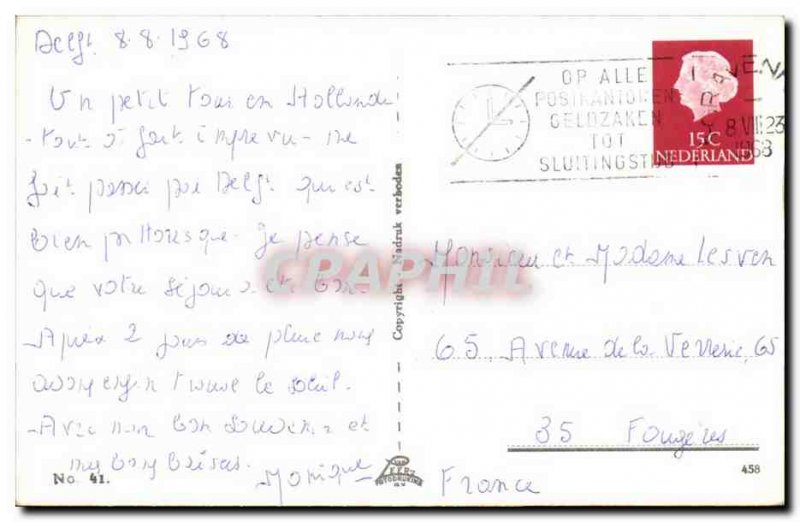 Delft 8.8.1968
Un petit tour en Hollande
tout à fait imprévu me
fait passer par Delft qui est
bien pittoresque. Je pense
que votre séjour a été bon.
Après 2 jours de pluie nous
avons enfin trouvé le soleil.
Avec mon bon souvenir et
mes bons baisers.
Monique
No. 41.
Copyright - Nadruk verboden
VAN LEER'S
FOTODRUKIND.
N.V.
OP ALLE
POSTKANTOREN
GELDZAKEN
TOT
SLUITINGSTIJD
8.VIII.23
1968
15C
NEDERLAND
Monsieur et Madame Lesven
65, Avenue de la Verrerie, 65
35 Fougères
France
458
CPAPHIL